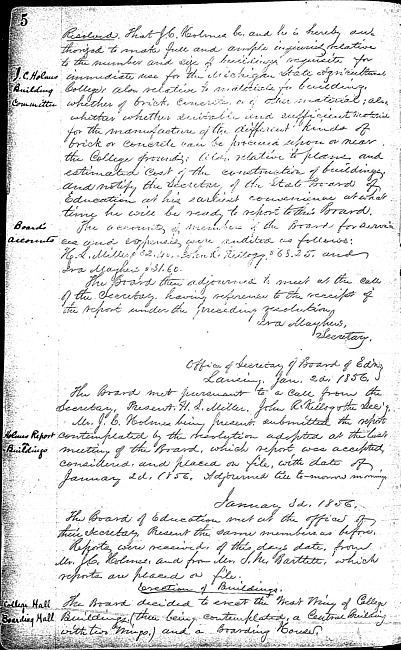 5
Resolved. That J.C. Holmes be, and he is hereby au-
thorized to make full and ample inquiries relative
to the number and size of buildings requisite for
J.C. Holmes
Building
Committee
immediate use for the Michigan State Agricultural
College, also relative to materials for building,
whether of brick, concrete, or of other material; also
whether suitable and sufficient material
for the manufacture of the different kinds of
brick or concrete can be procured upon or near
the College grounds; also, relative to plans, and
estimated cost of the construction of buildings,
and notify the Secretary of the State Board of
Education at his earliest convenience at what
time he will be ready to report to this Board.
Board
accounts
The accounts of members of the Board for servi-
ces and expenses were audited as follows:
H.L. Miller $ Kellogg $63.25, and
Ira Mayhew $31.60.
The Board then adjourned to meet at the call
of the Secretary, having reference to the receipt of
the report under the preceding resolution,
Ira Mayhew,
Secretary.
Office of Secretary of Board of Edn,
Lansing, Jan. 2d, 1856.
The Board met pursuant to a call from the
Secretary, Present, H.L. Miller, John R. Kellogg & the Sec'y.
Mr. J.C. Holmes being present, submitted the report
Holmes Report
Buildings
contemplated by the resolution adopted at the last
meeting of the Board, which report was accepted,
considered, and placed on file, with date of
January 2d, 1856. Adjourned till to-morrow morning.
January 3d, 1856.
The Board of Education met at the office of
their Secretary. Present the same members as before.
Reports were received, of this day's date, from
Mr. J.C. Holmes, and from Mr. S.M. Bartlett, which
reports are placed on file.
Erection of Buildings.
College Hall
Boarding Hall
The Board decided to erect the West Wing of College
Buildings, (there being contemplated, a Central Building
with two Wings,) and a Boarding House,